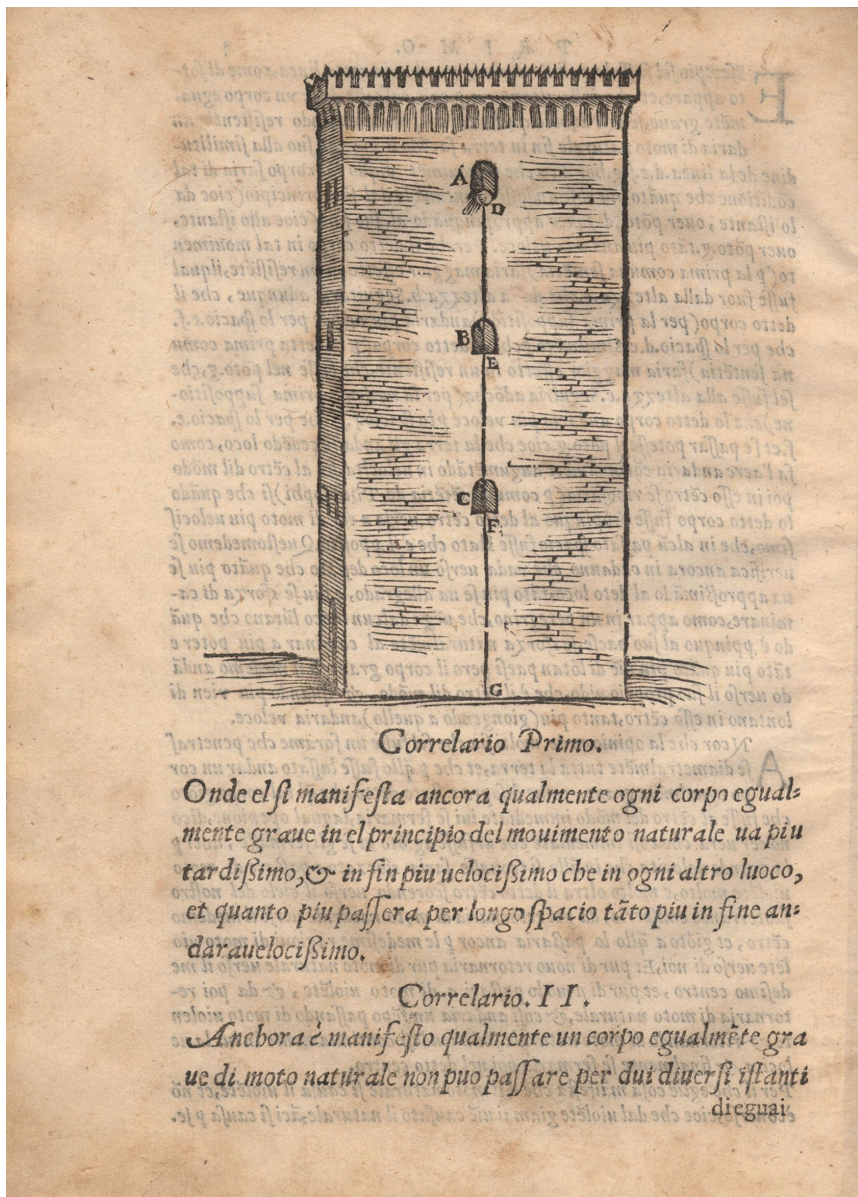 A
D
B
E
C
F
G
Correlario Primo.
Onde el si manifesta ancora qualmente ogni corpo egual-
mente graue in el principio del mouimento naturale ua piu
tardißimo, & in fin piu uelocißimo che in ogni altro luoco,
et quanto piu passera per longo spacio tãto piu in fine an-
darauelocißimo.
Correlario. II.
Anchora è manifesto qualmente un corpo egualmẽte gra
ue di moto naturale non puo passare per dui diuersi istanti
dieguai